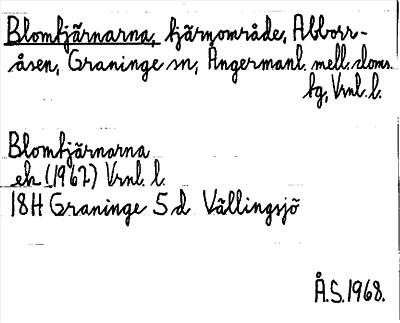 Blomtjärnarna, tjärnområde, Abborr-
åsen, Graninge sn, Ångermanl. mell. doms.
tg, Vrnl. l.
Blomtjärnarna
ek (1967) Vrnl. l.
18H Graninge 5d Vällingsjö
Å.S. 1968.